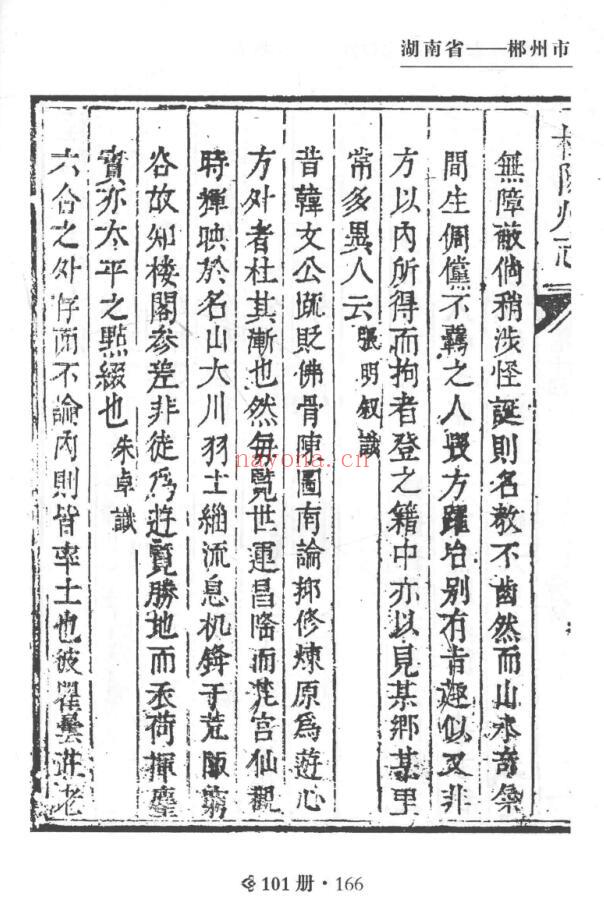 湖南省——郴州市
桂陽州志
無障蔽倘稍涉怪誕則名教不齒然而山水奇㮣
間生倜儻不羈之人毀方躍冶别有旨趣似又非
方以內所得而拘者登之籍中亦以見某鄉某里
常多異人云張明叙識
昔韓文公疏貶佛骨陳圖南論抑修煉原爲遊心
方外者杜其漸也然每覽世運昌隆而梵宫仙觀
時輝映於名山大川羽士緇流息机鋒于荒陬窮
谷故知楼閣參差非徒為遊覽勝地而衣荷揮麈
實亦太平之點綴也朱卓識
六合之外存而不論內則皆率土也彼瞿曇莊老
nayona.cn
101册·166